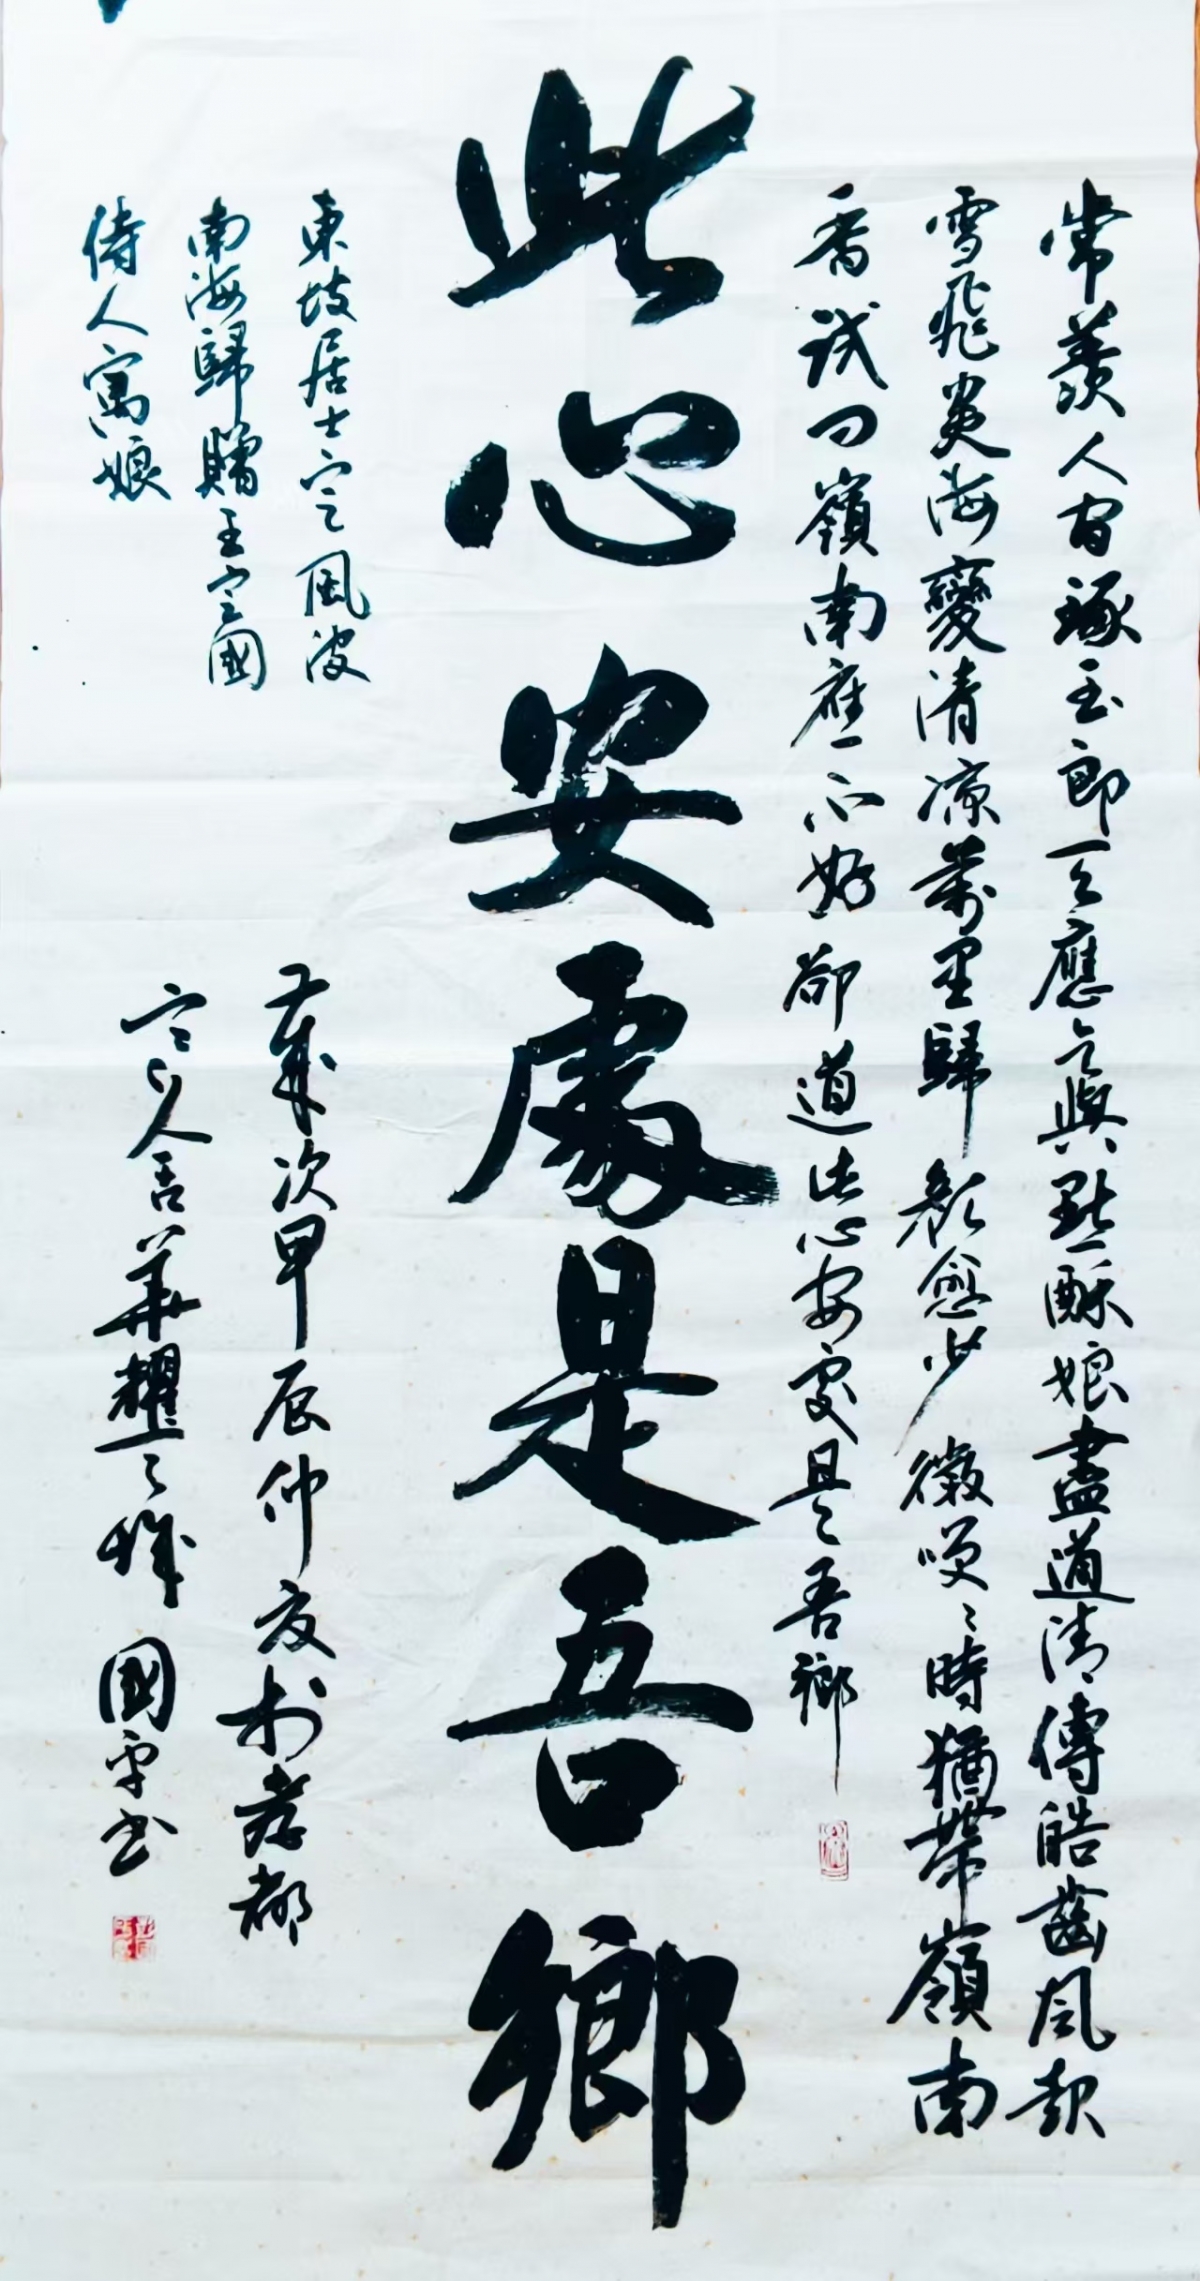 常羨人间琢玉郎天應乞與點酥娘盡道清傳皓齒風起
雪飛炎海變清凉萬里歸顏愈少微笑笑時猶帶嶺南
香試问嶺南應不好卻道此心安處是吾鄉
此心安處是吾鄉
東坡居士定風波
南海歸贈王定國
侍人寓娘
歲次甲辰仲夏於孝都
人華耀之國平书